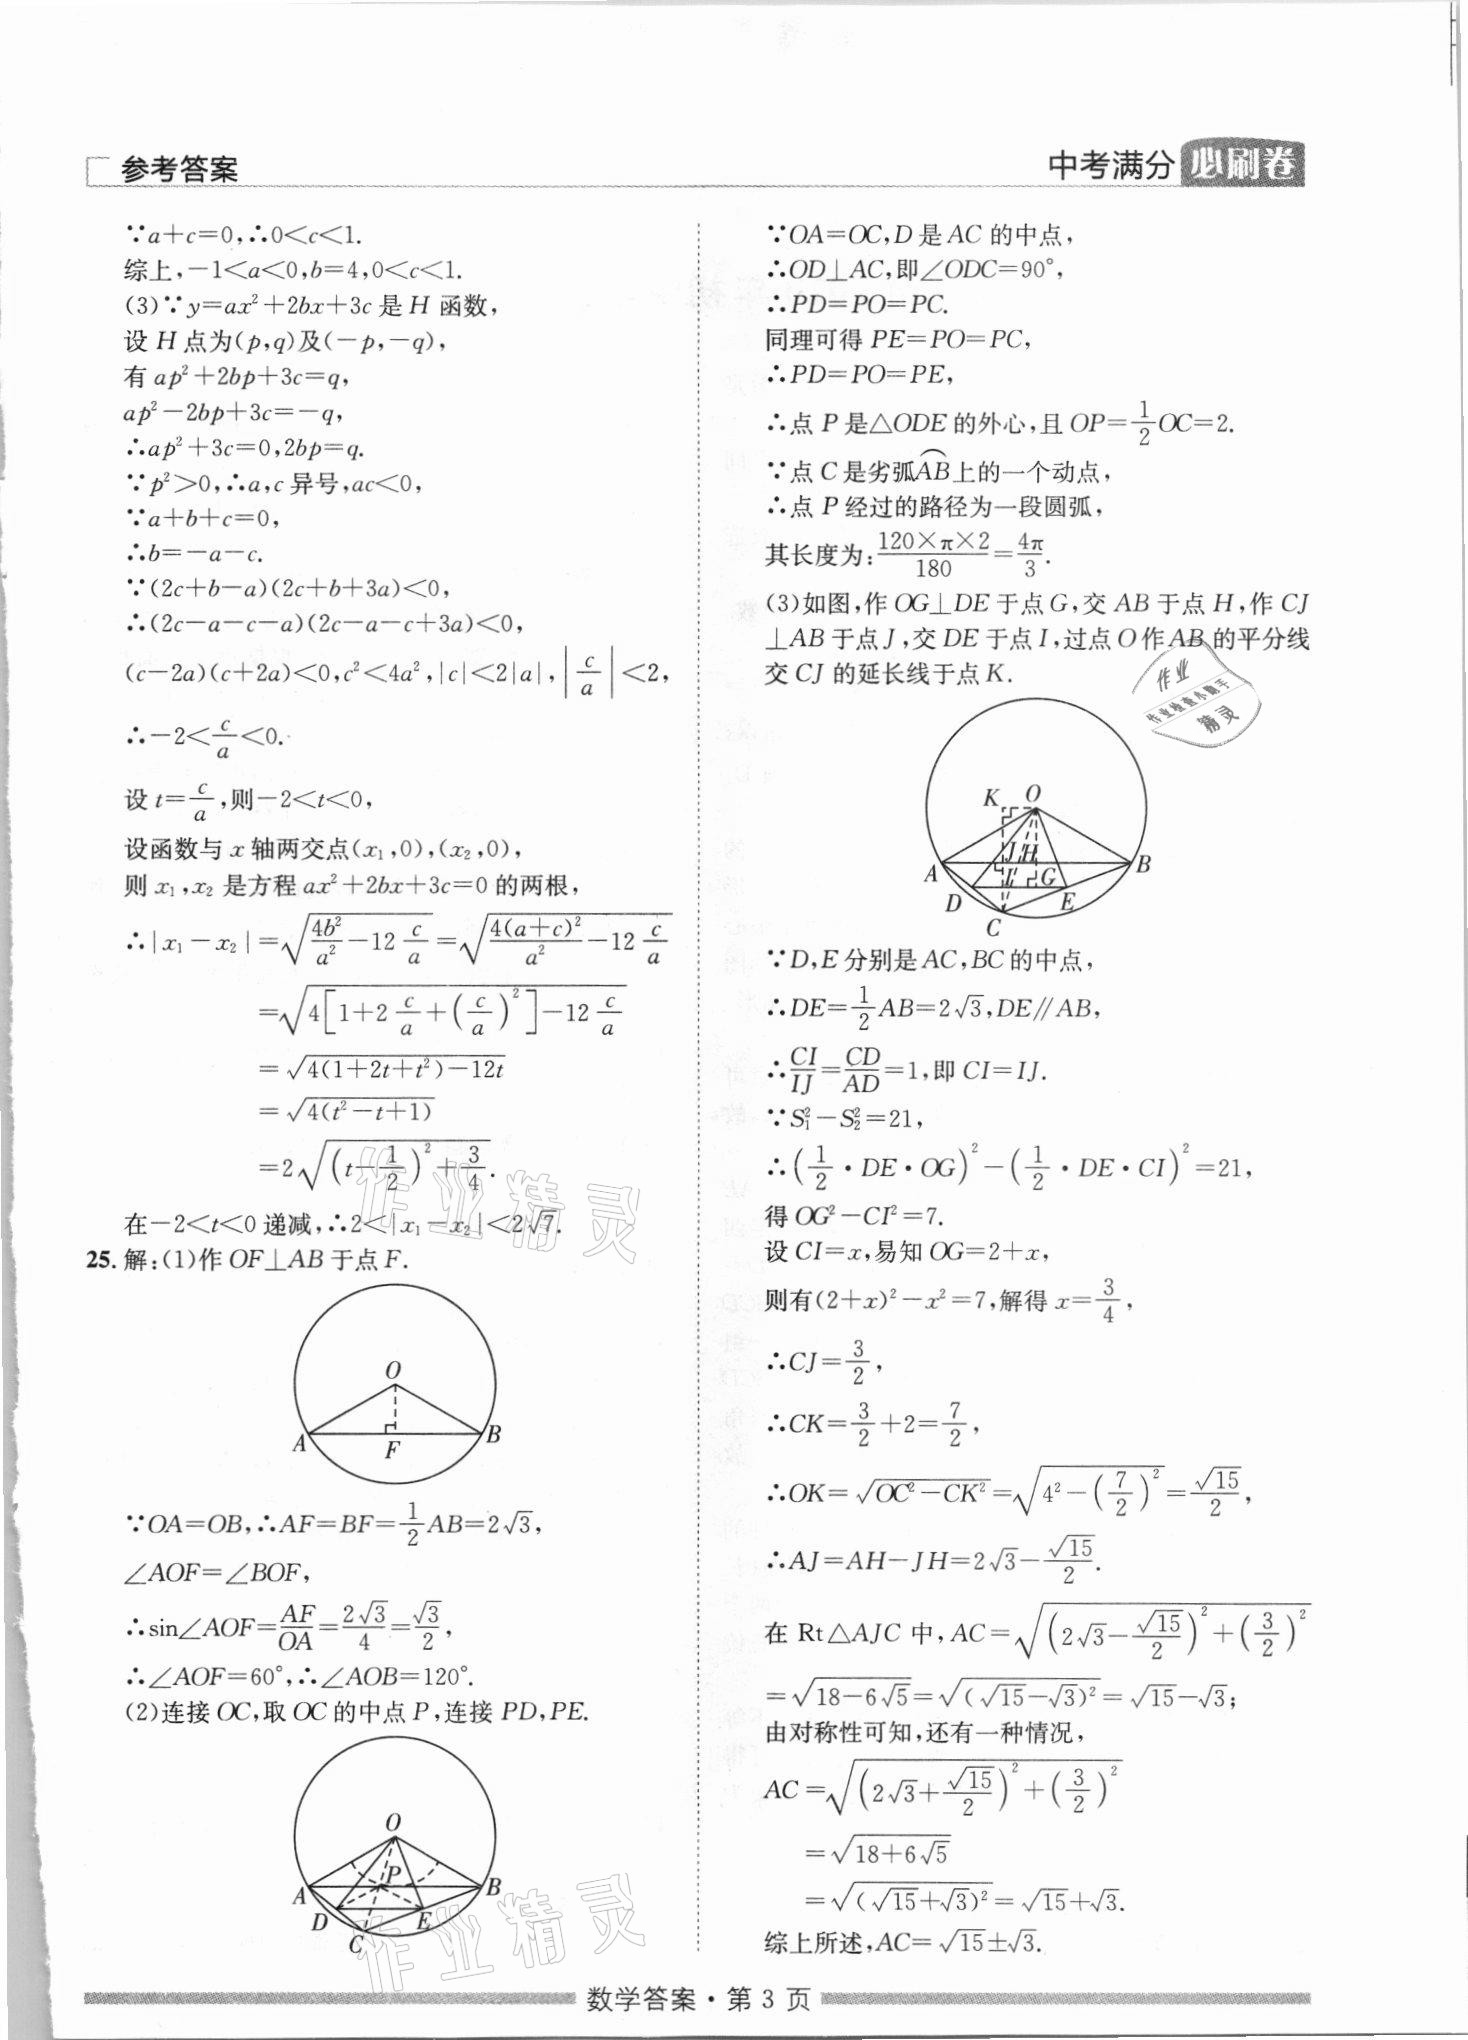 参考答案
中考满分 必刷卷
∵a+c=0,∴0<c<1.
综上,-1<a<0,b=4,0<c<1.
(3)∵y=ax²+2bx+3c是H函数,
设H点为(p,q)及(-p,-q),
有ap²+2bp+3c=q,
ap²-2bp+3c=-q,
∴ap²+3c=0,2bp=q.
∵p²>0,∴a,c异号,ac<0,
∵a+b+c=0,
∴b=-a-c.
∵(2c+b-a)(2c+b+3a)<0,
∴(2c-a-c-a)(2c-a-c+3a)<0,
(c-2a)(c+2a)<0,c²<4a²,|c|<2|a|,|c/a|<2,
∴-2<c/a<0.
设t=c/a,则-2<t<0,
设函数与x轴两交点(x₁,0),(x₂,0),
则x₁,x₂是方程ax²+2bx+3c=0的两根,
∴|x₁-x₂|=√(4b²/a²-12 c/a)=√(4(a+c)²/a²-12 c/a)
=√(4[1+2 c/a+(c/a)²]-12 c/a)
=√(4(1+2t+t²)-12t)
=√(4(t²-t+1))
=2√((t-1/2)²+3/4).
在-2<t<0递减,∴2<|x₁-x₂|<2√7.
25.解:(1)作OF⊥AB于点F.
O
A F B
∵OA=OB,∴AF=BF=1/2 AB=2√3,
∠AOF=∠BOF,
∴sin∠AOF=AF/OA=2√3/4=√3/2,
∴∠AOF=60°,∴∠AOB=120°.
(2)连接OC,取OC的中点P,连接PD,PE.
O
A P B
D E
C
∵OA=OC,D是AC的中点,
∴OD⊥AC,即∠ODC=90°,
∴PD=PO=PC.
同理可得PE=PO=PC,
∴PD=PO=PE,
∴点P是△ODE的外心,且OP=1/2 OC=2.
∵点C是劣弧AB⌒上的一个动点,
∴点P经过的路径为一段圆弧,
其长度为:120×π×2/180=4π/3.
(3)如图,作OG⊥DE于点G,交AB于点H,作CJ
⊥AB于点J,交DE于点I,过点O作AB的平分线
交CJ的延长线于点K.
作业
作业检查小助手
精灵
K O
A J H B
D I G E
C
∵D,E分别是AC,BC的中点,
∴DE=1/2 AB=2√3,DE∥AB,
∴CI/IJ=CD/AD=1,即CI=IJ.
∵S₁²-S₂²=21,
∴(1/2·DE·OG)²-(1/2·DE·CI)²=21,
得OG²-CI²=7.
设CI=x,易知OG=2+x,
则有(2+x)²-x²=7,解得x=3/4,
∴CJ=3/2,
∴CK=3/2+2=7/2,
∴OK=√(OC²-CK²)=√(4²-(7/2)²)=√15/2,
∴AJ=AH-JH=2√3-√15/2.
在Rt△AJC中,AC=√((2√3-√15/2)²+(3/2)²)
=√(18-6√5)=√((√15-√3)²)=√15-√3;
由对称性可知,还有一种情况,
AC=√((2√3+√15/2)²+(3/2)²)
=√(18+6√5)
=√((√15+√3)²)=√15+√3.
综上所述,AC=√15±√3.
作业精灵
作业精灵
数学答案·第3页